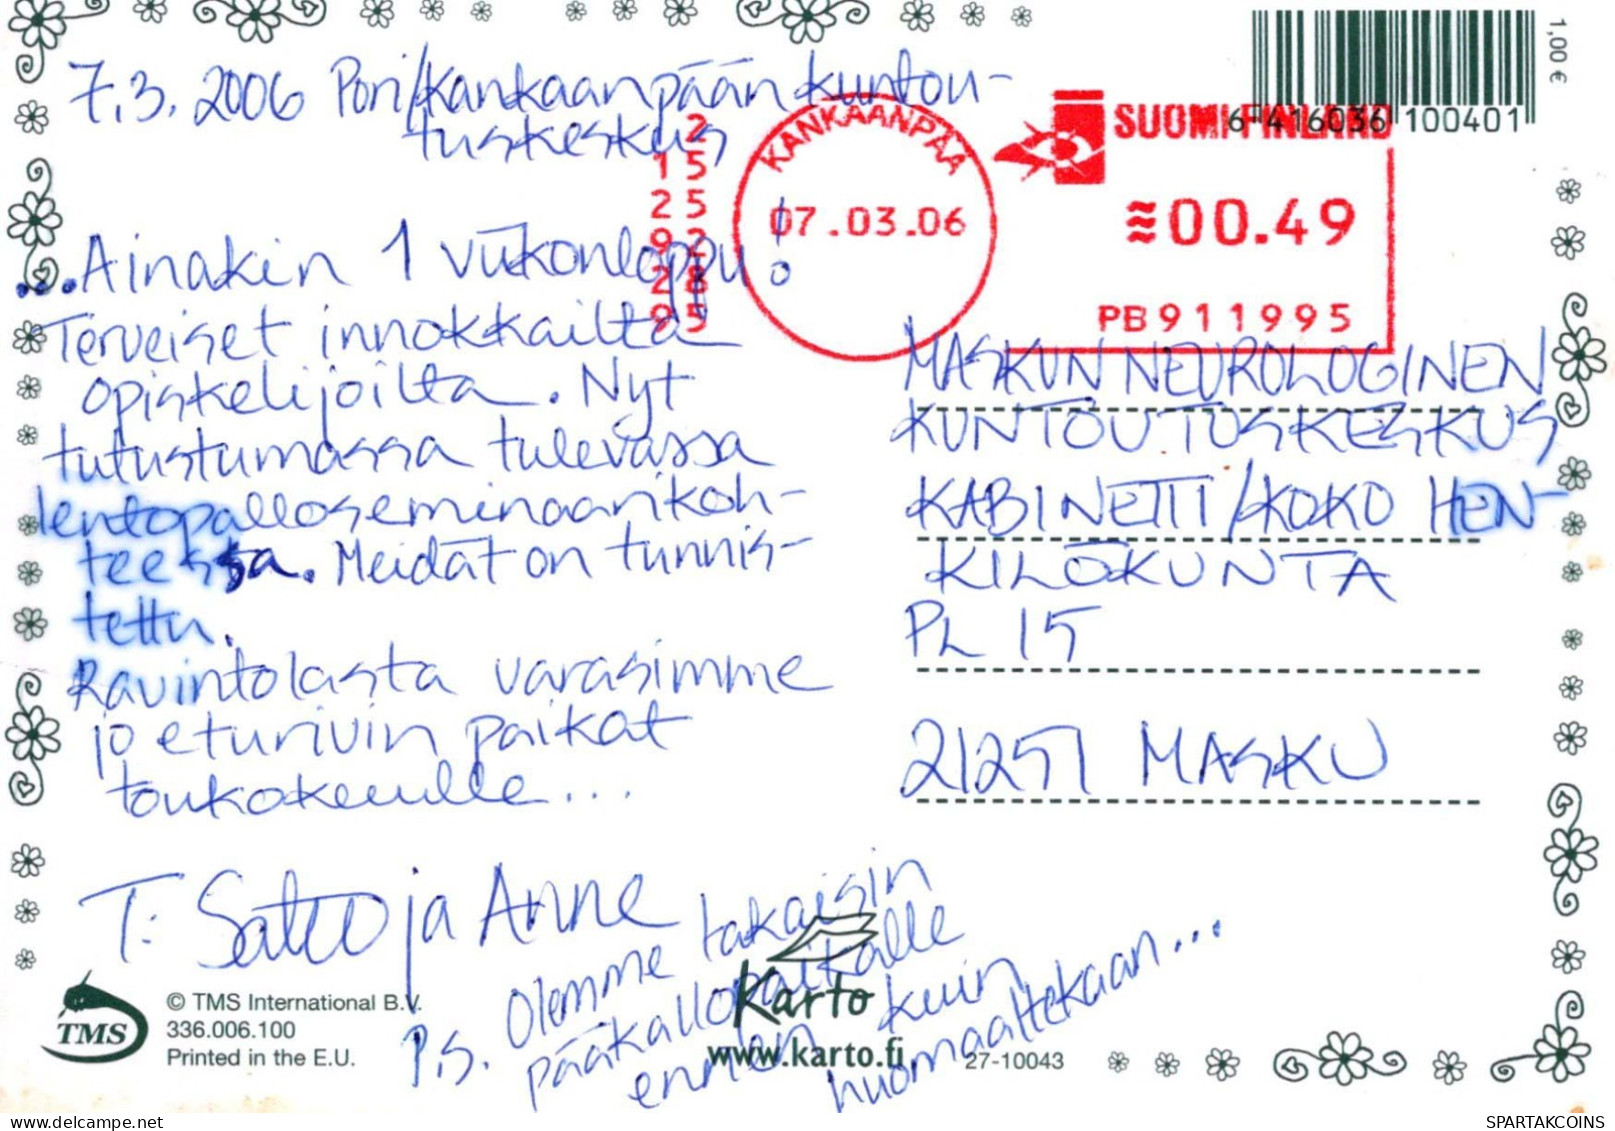 7.3. 2006 Pori/Kankaanpään kuntou-
tuskeskus
...Ainakin 1 viikonloppu!
Terveiset innokkailta
opiskelijoilta. Nyt
tutustumassa tulevassa
lentopalloseminaarikoh-
teessa. Meidät on tunnis-
tettu.
Ravintolasta varasimme
jo eturivin paikat
toukokuulle...
T: Satu ja Anne
P.S. Olemme takaisin
pääkallopaikalle
ennen kuin
huomaattekaan...
2
15
25
92
28
95
KANKAANPÄÄ
07.03.06
SUOMI-FINLAND
00.49
PB911995
6 416036 100401
1,00 €
MASKUN NEUROLOGINEN
KUNTOUTUSKESKUS
KABINETTI/KOKO HEN-
KILÖKUNTA
PL 15
21251 MASKU
TMS
© TMS International B.V.
336.006.100
Printed in the E.U.
Karto
www.karto.fi
27-10043
delcampe.net
SPARTAKCOINS